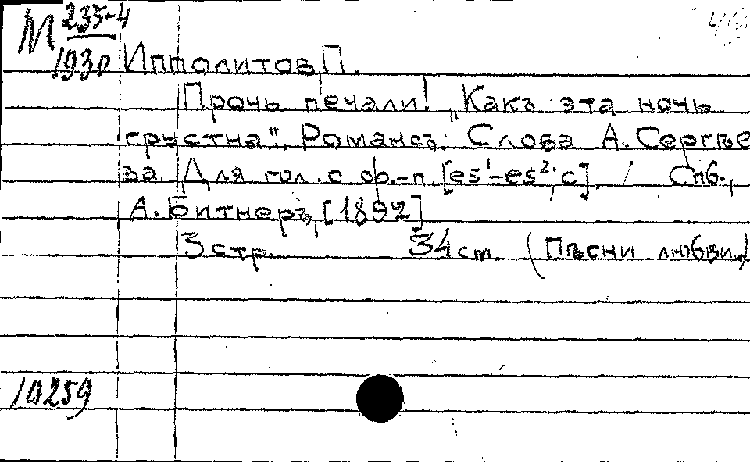 М 235-4
193о Ипполитов, П.
Прочь печали! „Какъ эта ночь
грустна". Романсъ. Слова А. Сергѣе
ва. Для гол. с ф.-п. [es¹-es²; c]. Спб.,
А. Битнеръ, [1892]
3 стр. 34 cm. (Пѣсни любви.)
10259